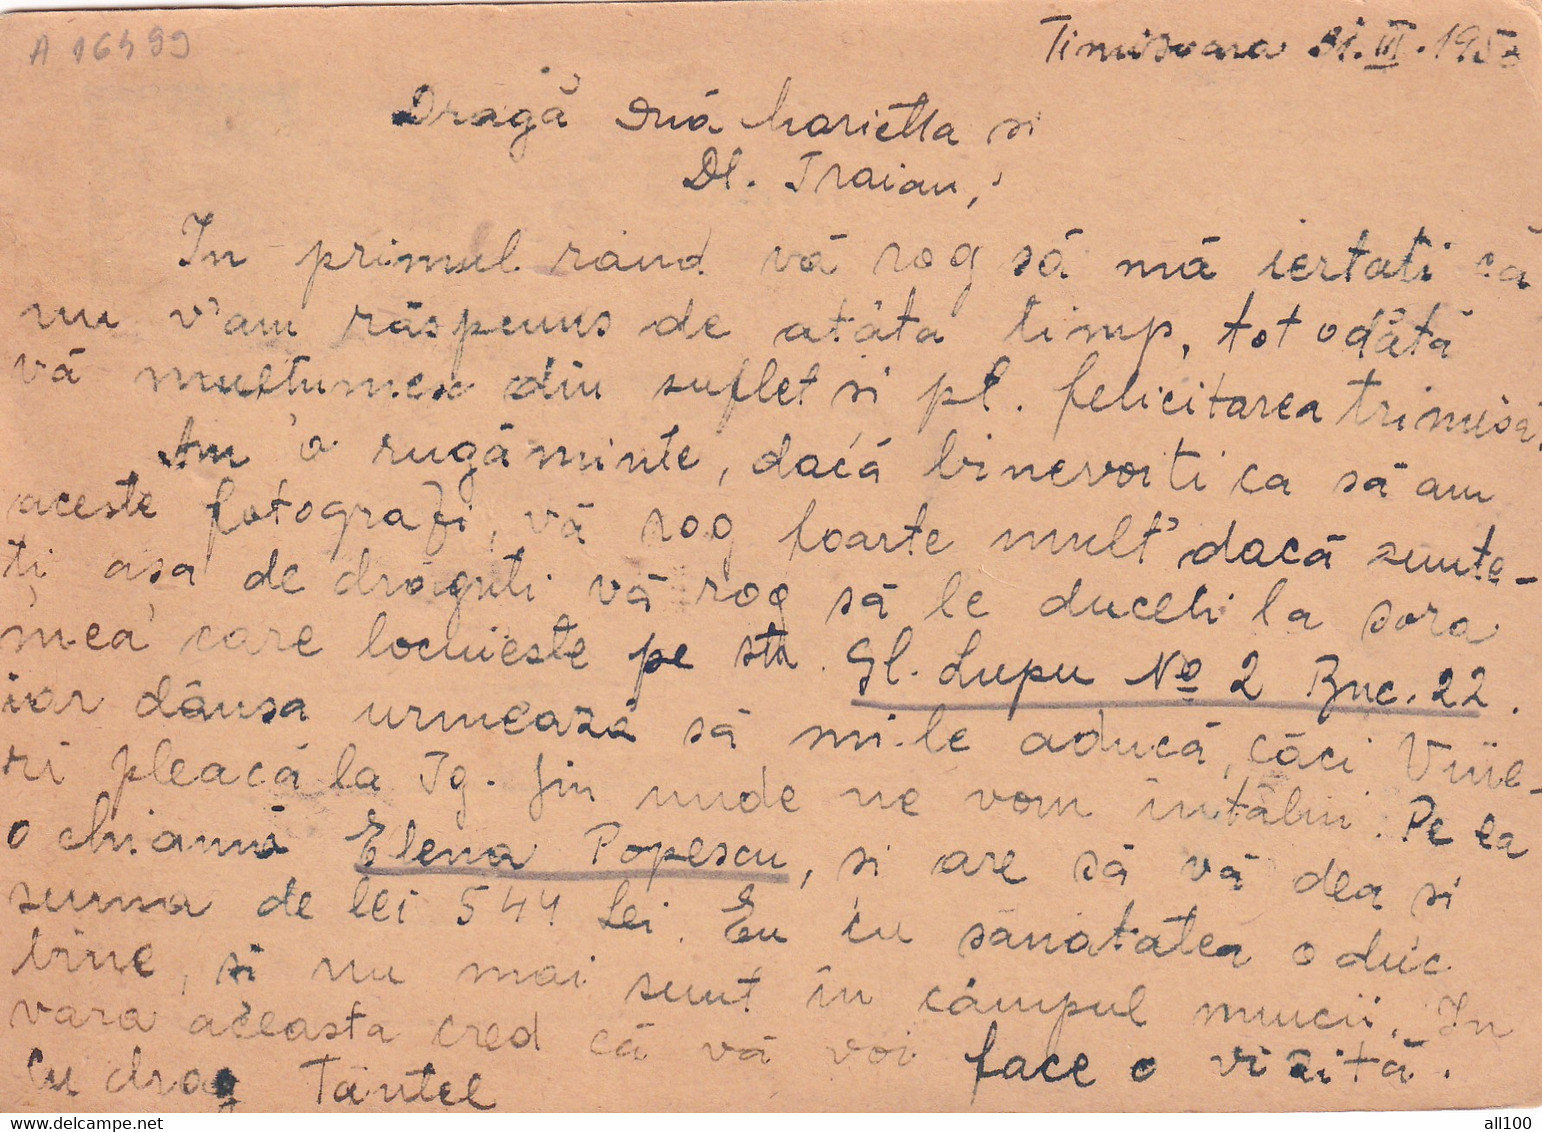 A 16499
Timisoara 31.III.195
Dragă Marietta si
Dl. Traian,
In primul rând vă rog să mă iertati că
nu v'am răspuns de atâta timp, tot odâtă
vă multumesc din suflet si pl. felicitarea trimisă.
Am o rugăminte, dacă binevoiti ca să am
aceste fotografi, vă rog foarte mult dacă sunte-
ti așa de drăguti vă rog să le duceti la sora
mea care locuieste pe str. Gl. Lupu No 2 Buc. 22.
iar dânsa urmează să mi-le aducă, căci Vine-
ri pleacă la Tg. Jiu unde ne vom întâlni. Pe ea
o chiamă Elena Popescu, si are să vă dea si
suma de lei 544 Lei. Eu cu sănătatea o duc
bine, si nu mai sunt în câmpul muncii. In
vara aceasta cred că vă voi face o vizită.
Cu drag Tântel
www.delcampe.net
all100